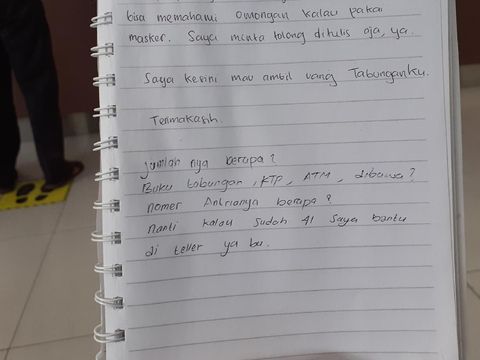 bisa memahami omongan kalau pakai
masker. Saya minta tolong ditulis aja, ya.
Saya kesini mau ambil uang Tabunganku.
Termakasih.
Jumlah nya berapa?
Buku tabungan, KTP, ATM, dibawa?
nomer Antrianya berapa?
nanti kalau sudah 41 saya bantu
di teller ya bu.